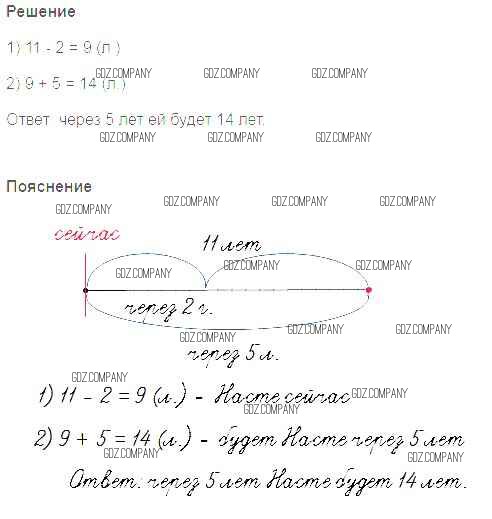 Решение
1) 11 - 2 = 9 (л.)
GDZ.COMPANY GDZ.COMPANY GDZ.COMPANY
2) 9 + 5 = 14 (л.)
Ответ через 5 лет ей будет 14 лет.
GDZ.COMPANY GDZ.COMPANY GDZ.COMPANY
Пояснение
GDZ.COMPANY GDZ.COMPANY GDZ.COMPANY GDZ.COMPANY
сейчас
11 лет
GDZ.COMPANY GDZ.COMPANY GDZ.COMPANY
через 2 г.
GDZ.COMPANY GDZ.COMPANY GDZ.COMPANY
через 5 л.
GDZ.COMPANY
1) 11 - 2 = 9 (л.) - Насте сейчас
GDZ.COMPANY GDZ.COMPANY
2) 9 + 5 = 14 (л.) - будет Насте через 5 лет
GDZ.COMPANY GDZ.COMPANY
Ответ: через 5 лет Насте будет 14 лет.
GDZ.COMPANY GDZ.COMPANY